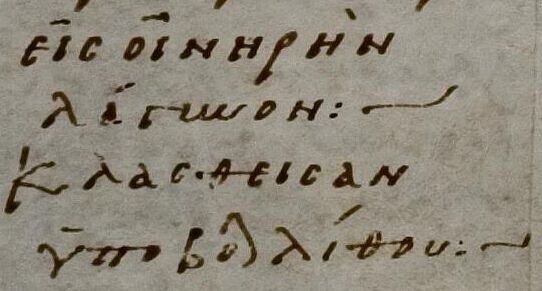 εἰς οἰνηρὴν
λάγυνον:~
κλασθεισαν
ὑπο βολ λίθου:~